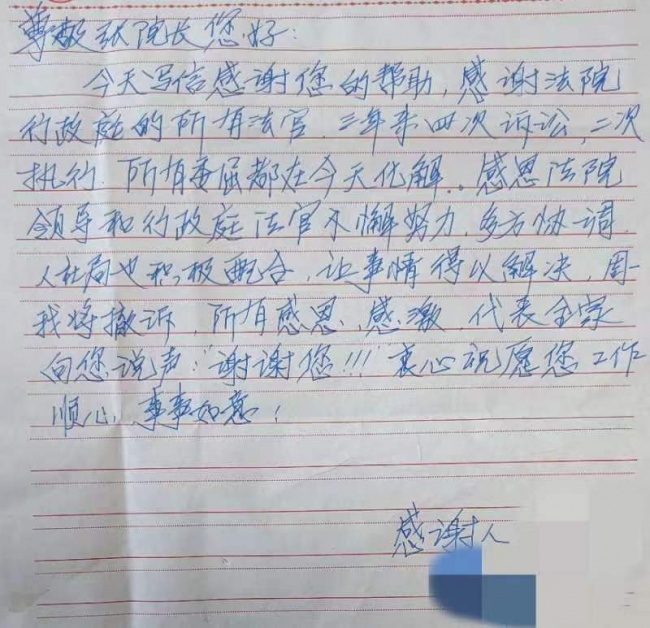 尊敬张院长您好：
今天写信感谢您的帮助，感谢法院
行政庭的所有法官，三年来四次诉讼，二次
执行，所有委屈都在今天化解，感恩法院
领导和行政庭法官不懈努力，多方协调，
人社局也积极配合，让事情得以解决，周一
我将撤诉，所有感恩、感激，代表全家
向您说声：谢谢您！！！衷心祝愿您工作
顺心、事事如意！
感谢人